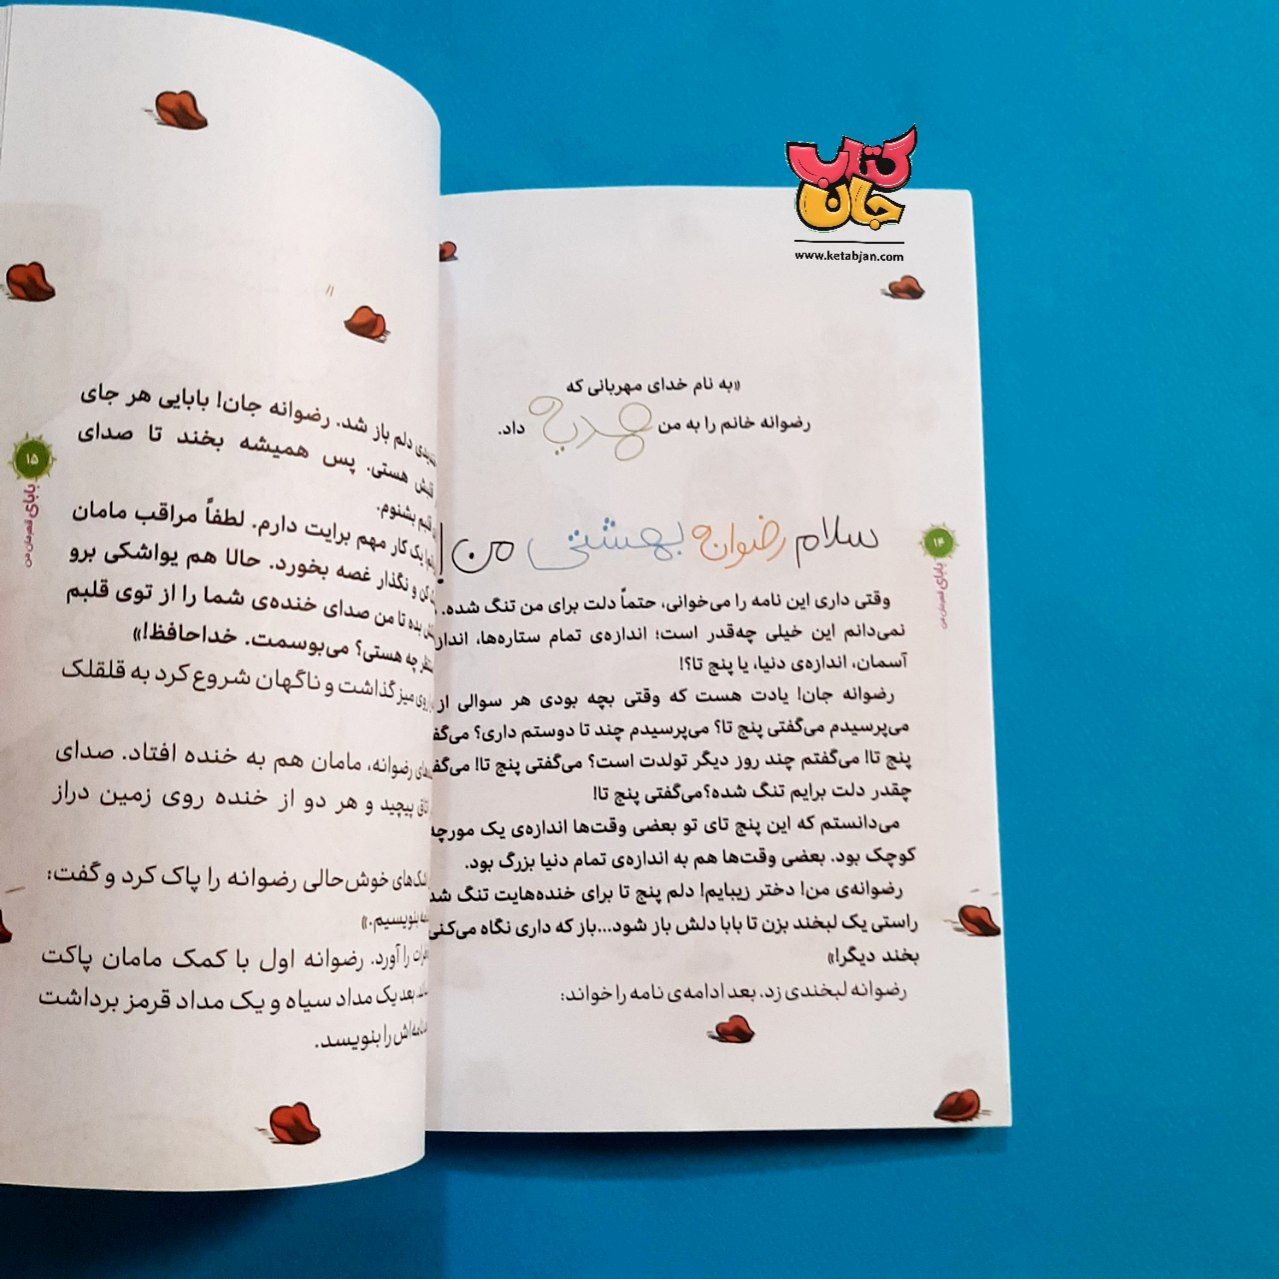 کتاب جان
www.ketabjan.com
«به نام خدای مهربانی که
رضوانه خانم را به من هدیه داد.
سلام رضوانه بهشتی من!
وقتی داری این نامه را می‌خوانی، حتماً دلت برای من تنگ شده.
نمی‌دانم این خیلی چه‌قدر است؛ اندازه‌ی تمام ستاره‌ها،
آسمان، اندازه‌ی دنیا، یا پنج تا؟!
رضوانه جان! یادت هست که وقتی بچه بودی هر سوالی از
می‌پرسیدم می‌گفتی پنج تا؟ می‌پرسیدم چند تا دوستم داری؟
پنج تا! می‌گفتم چند روز دیگر تولدت است؟ می‌گفتی پنج تا!
چقدر دلت برایم تنگ شده؟ می‌گفتی پنج تا!
می‌دانستم که این پنج تای تو بعضی وقت‌ها اندازه‌ی یک مورچه
کوچک بود. بعضی وقت‌ها هم به اندازه‌ی تمام دنیا بزرگ بود.
رضوانه‌ی من! دختر زیبایم! دلم پنج تا برای خنده‌هایت تنگ
راستی یک لبخند بزن تا بابا دلش باز شود...باز که داری نگاه می‌کنی
بخند دیگر!»
رضوانه لبخندی زد. بعد ادامه‌ی نامه را خواند:
۱۴
بابای قهرمان من
دلم باز شد. رضوانه جان! بابایی هر جای
هستی. پس همیشه بخند تا صدای
قلبم بشنوم.
یک کار مهم برایت دارم. لطفاً مراقب مامان
کن و نگذار غصه بخورد. حالا هم یواشکی برو
بده تا من صدای خنده‌ی شما را از توی قلبم
چه هستی؟ می‌بوسمت. خداحافظ!»
روی میز گذاشت و ناگهان شروع کرد به قلقلک
رضوانه، مامان هم به خنده افتاد. صدای
پیچید و هر دو از خنده روی زمین دراز
خوش‌حالی رضوانه را پاک کرد و گفت:
بنویسیم.»
را آورد. رضوانه اول با کمک مامان پاکت
بعد یک مداد سیاه و یک مداد قرمز برداشت
را بنویسد.
۱۵
بابای قهرمان من